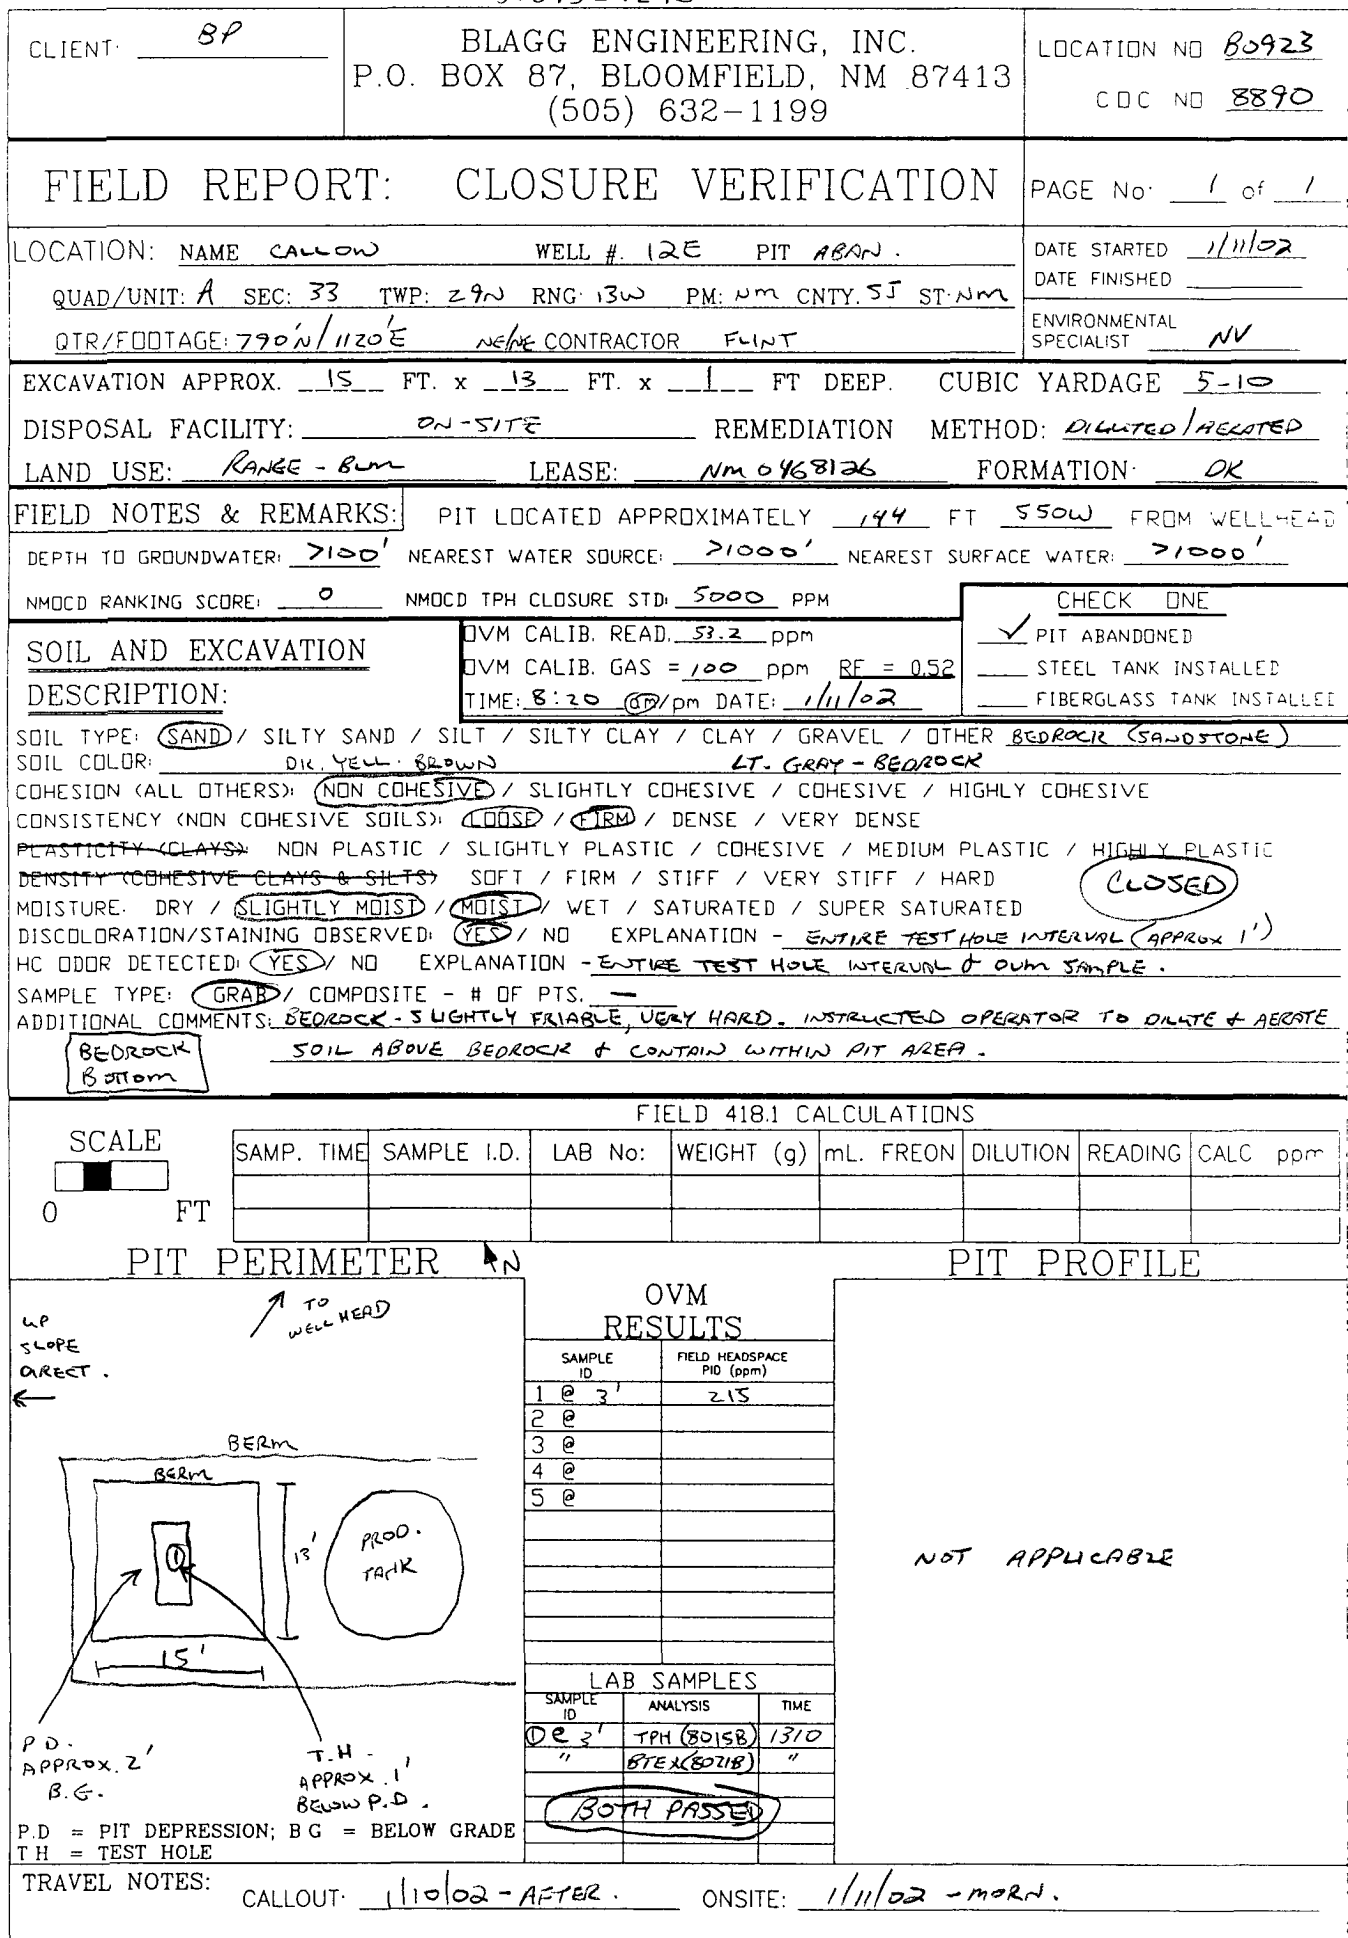 CLIENT: BP
BLAGG ENGINEERING, INC.
P.O. BOX 87, BLOOMFIELD, NM 87413
(505) 632-1199
LOCATION NO B0923
COC NO 8890
FIELD REPORT: CLOSURE VERIFICATION
PAGE No: 1 of 1
LOCATION: NAME CALLOW WELL #: 12E PIT ABAN.
QUAD/UNIT: A SEC: 33 TWP: 29N RNG: 13W PM: NM CNTY: SJ ST: NM
QTR/FOOTAGE: 790'N/1120'E NE/NE CONTRACTOR FLINT
DATE STARTED 1/11/02
DATE FINISHED
ENVIRONMENTAL
SPECIALIST NV
EXCAVATION APPROX. 15 FT. x 13 FT. x 1 FT DEEP. CUBIC YARDAGE 5-10
DISPOSAL FACILITY: ON-SITE REMEDIATION METHOD: DILUTED/AERATED
LAND USE: RANGE - BLM LEASE: NM 0468126 FORMATION: DK
FIELD NOTES & REMARKS: PIT LOCATED APPROXIMATELY 144 FT S50W FROM WELLHEAD
DEPTH TO GROUNDWATER: >100' NEAREST WATER SOURCE: >1000' NEAREST SURFACE WATER: >1000'
NMOCD RANKING SCORE: 0 NMOCD TPH CLOSURE STD: 5000 PPM
CHECK ONE
✓ PIT ABANDONED
STEEL TANK INSTALLED
FIBERGLASS TANK INSTALLED
SOIL AND EXCAVATION
DESCRIPTION:
OVM CALIB. READ. 53.2 ppm
OVM CALIB. GAS = 100 ppm RF = 0.52
TIME: 8:20 am/pm DATE: 1/11/02
SOIL TYPE: SAND / SILTY SAND / SILT / SILTY CLAY / CLAY / GRAVEL / OTHER BEDROCK (SANDSTONE)
SOIL COLOR: DK. YELL. BROWN LT. GRAY - BEDROCK
COHESION (ALL OTHERS): NON COHESIVE / SLIGHTLY COHESIVE / COHESIVE / HIGHLY COHESIVE
CONSISTENCY (NON COHESIVE SOILS): LOOSE / FIRM / DENSE / VERY DENSE
PLASTICITY (CLAYS): NON PLASTIC / SLIGHTLY PLASTIC / COHESIVE / MEDIUM PLASTIC / HIGHLY PLASTIC
DENSITY (COHESIVE CLAYS & SILTS) SOFT / FIRM / STIFF / VERY STIFF / HARD
CLOSED
MOISTURE: DRY / SLIGHTLY MOIST / MOIST / WET / SATURATED / SUPER SATURATED
DISCOLORATION/STAINING OBSERVED: YES / NO EXPLANATION - ENTIRE TEST HOLE INTERVAL (APPROX 1')
HC ODOR DETECTED: YES / NO EXPLANATION - ENTIRE TEST HOLE INTERVAL & OVM SAMPLE.
SAMPLE TYPE: GRAB / COMPOSITE - # OF PTS. —
ADDITIONAL COMMENTS: BEDROCK - SLIGHTLY FRIABLE, VERY HARD. INSTRUCTED OPERATOR TO DILUTE & AERATE
SOIL ABOVE BEDROCK & CONTAIN WITHIN PIT AREA.
BEDROCK
BOTTOM
FIELD 418.1 CALCULATIONS
SCALE
0 FT
SAMP. TIME SAMPLE I.D. LAB No: WEIGHT (g) mL. FREON DILUTION READING CALC ppm
PIT PERIMETER N
PIT PROFILE
TO
WELL HEAD
UP
SLOPE
DIRECT.
BERM
BERM
1
13'
PROD.
TANK
15'
P.D.
APPROX. 2'
B.G.
T.H.
APPROX. 1'
BELOW P.D.
P.D = PIT DEPRESSION; B G = BELOW GRADE
T H = TEST HOLE
OVM
RESULTS
SAMPLE ID FIELD HEADSPACE PID (ppm)
1 @ 3' 215
2 @
3 @
4 @
5 @
LAB SAMPLES
SAMPLE ID ANALYSIS TIME
1 @ 3' TPH (8015B) 1310
" BTEX (8021B) "
BOTH PASSED
NOT APPLICABLE
TRAVEL NOTES: CALLOUT: 1/10/02 - AFTER. ONSITE: 1/11/02 - MORN.